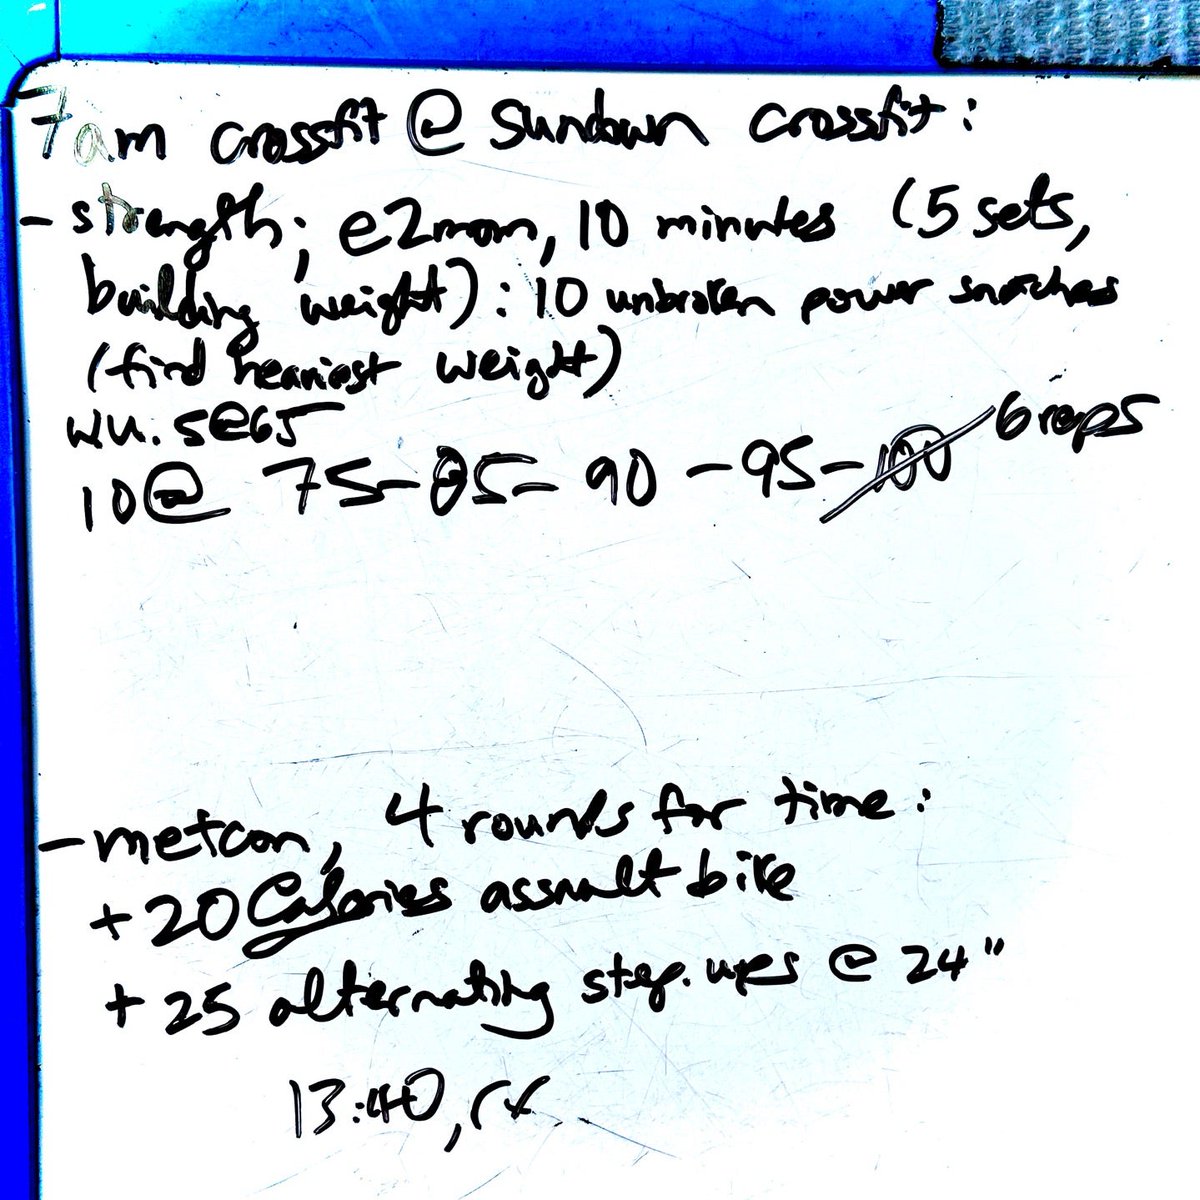 7am crossfit @ sundown crossfit:
- strength; e2mom, 10 minutes (5 sets,
building weight): 10 unbroken power snatches
(find heaviest weight)
wu. 5@65
10@ 75-85-90-95-100 6 reps
- metcon, 4 rounds for time:
+ 20 Calories assault bike
+ 25 alternating step-ups @ 24"
13:40, rx